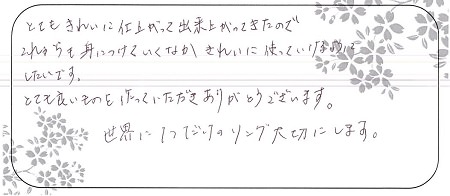 とてもきれいに仕上がって出来上がってきたので
これからも身につけていくなか きれいに使っていけるように
したいです。
とても良いものを作っていただきありがとうございます。
世界に1つだけのリング大切にします。